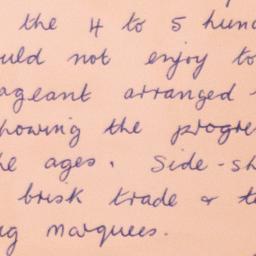 the 4 to 5 hun
not enjoy to
arranged
howing the progre
ages. Side-sh
brisk trade & t
marquees.